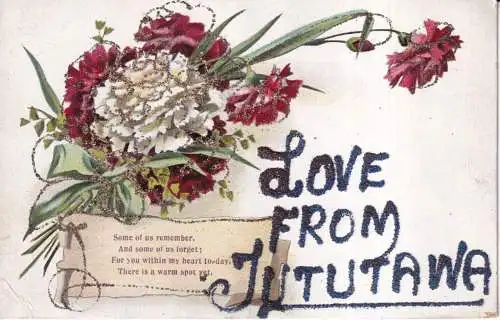 Some of us remember,
And some of us forget;
For you within my heart to-day,
There is a warm spot yet.
LOVE
FROM
TUTUTAWA